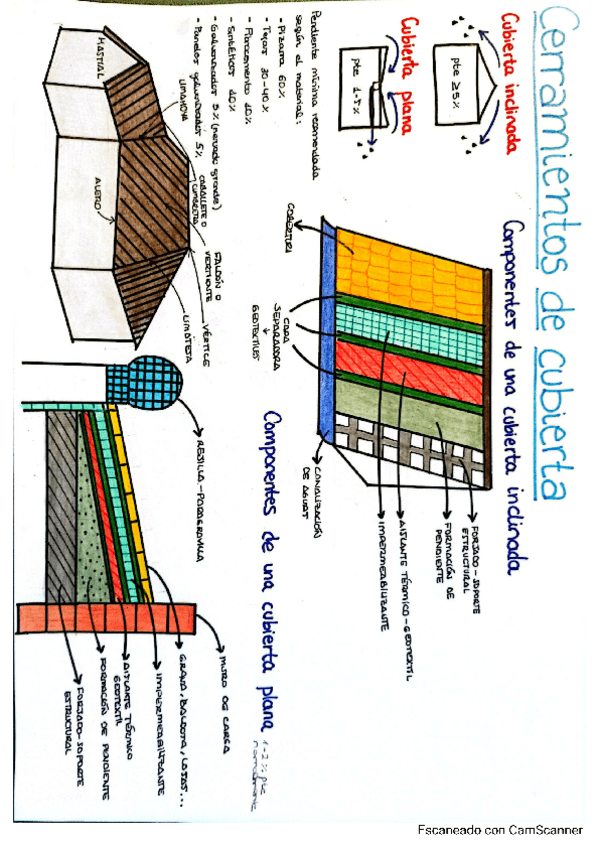 Cerramientos de cubierta
Cubierta inclinada
pte ≥5%
Cubierta plana
pte 1-5%
Pendiente mínima recomendada
según el material:
- Pizarra 60%
- Tejas 30-40%
- Fibrocemento 10%
- Sintéticos 10%
- Galvanizados 5% (nervado grande)
- Paneles galvanizados 5%
Componentes de una cubierta inclinada
COBERTURA
CAPA
SEPARADORA
GEOTEXTILES
FORJADO-SOPORTE
ESTRUCTURAL
FORMACIÓN DE
PENDIENTE
AISLANTE TÉRMICO-GEOTEXTIL
IMPERMEABILIZANTE
CANALIZACIÓN
DE AGUAS
HASTIAL
LIMAHOYA
CABALLETE O
CUMBRERA
FALDÓN O
VERTIENTE
VÉRTICE
LIMATESA
ALERO
Componentes de una cubierta plana
1-2% pte
normalmente
REJILLA-PARAGRAVILLA
MURO DE CARGA
GRAVA, BALDOSA, LOSAS...
IMPERMEABILIZANTE
AISLANTE TÉRMICO
GEOTEXTIL
FORMACIÓN DE PENDIENTE
FORJADO-SOPORTE
ESTRUCTURAL
Escaneado con CamScanner